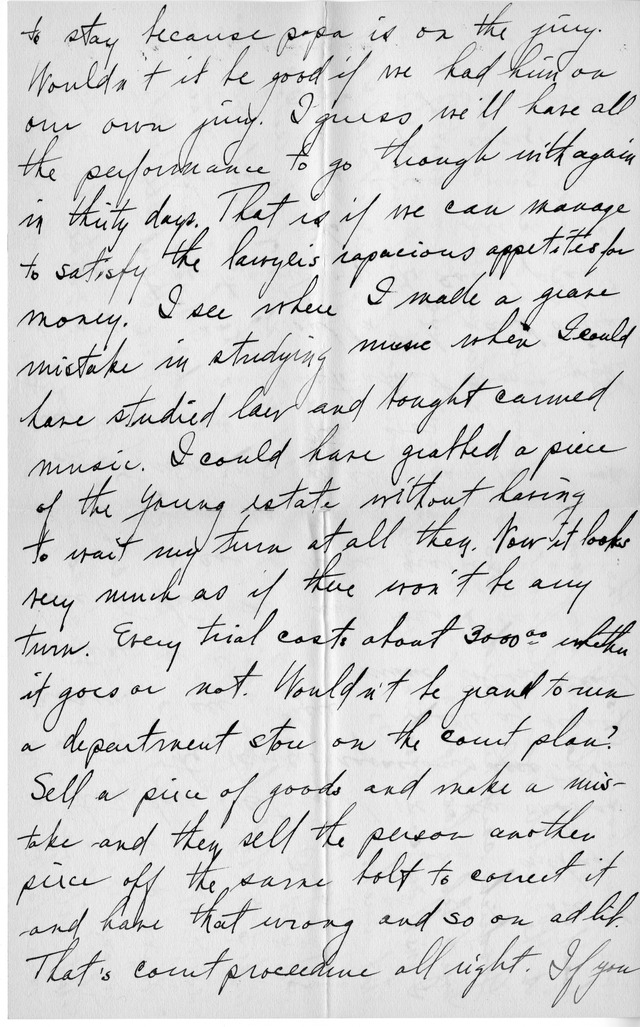 to stay because papa is on the jury.
Wouldn't it be good if we had him on
our own jury. I guess we'll have all
the performance to go through with again
in thirty days. That is if we can manage
to satisfy the lawyers rapacious appetites for
money. I see where I made a grave
mistake in studying music when I could
have studied law and bought canned
music. I could have grabbed a piece
of the Young estate without having
to wait my turn at all then. Now it looks
very much as if there won't be any
turn. Every trial costs about 3000 00 whether
it goes or not. Wouldn't be grand to run
a department store on the court plan?
Sell a piece of goods and make a mis-
take and then sell the person another
piece off the same bolt to correct it
and have that wrong and so on ad lib.
That's court proceedure all right. If you